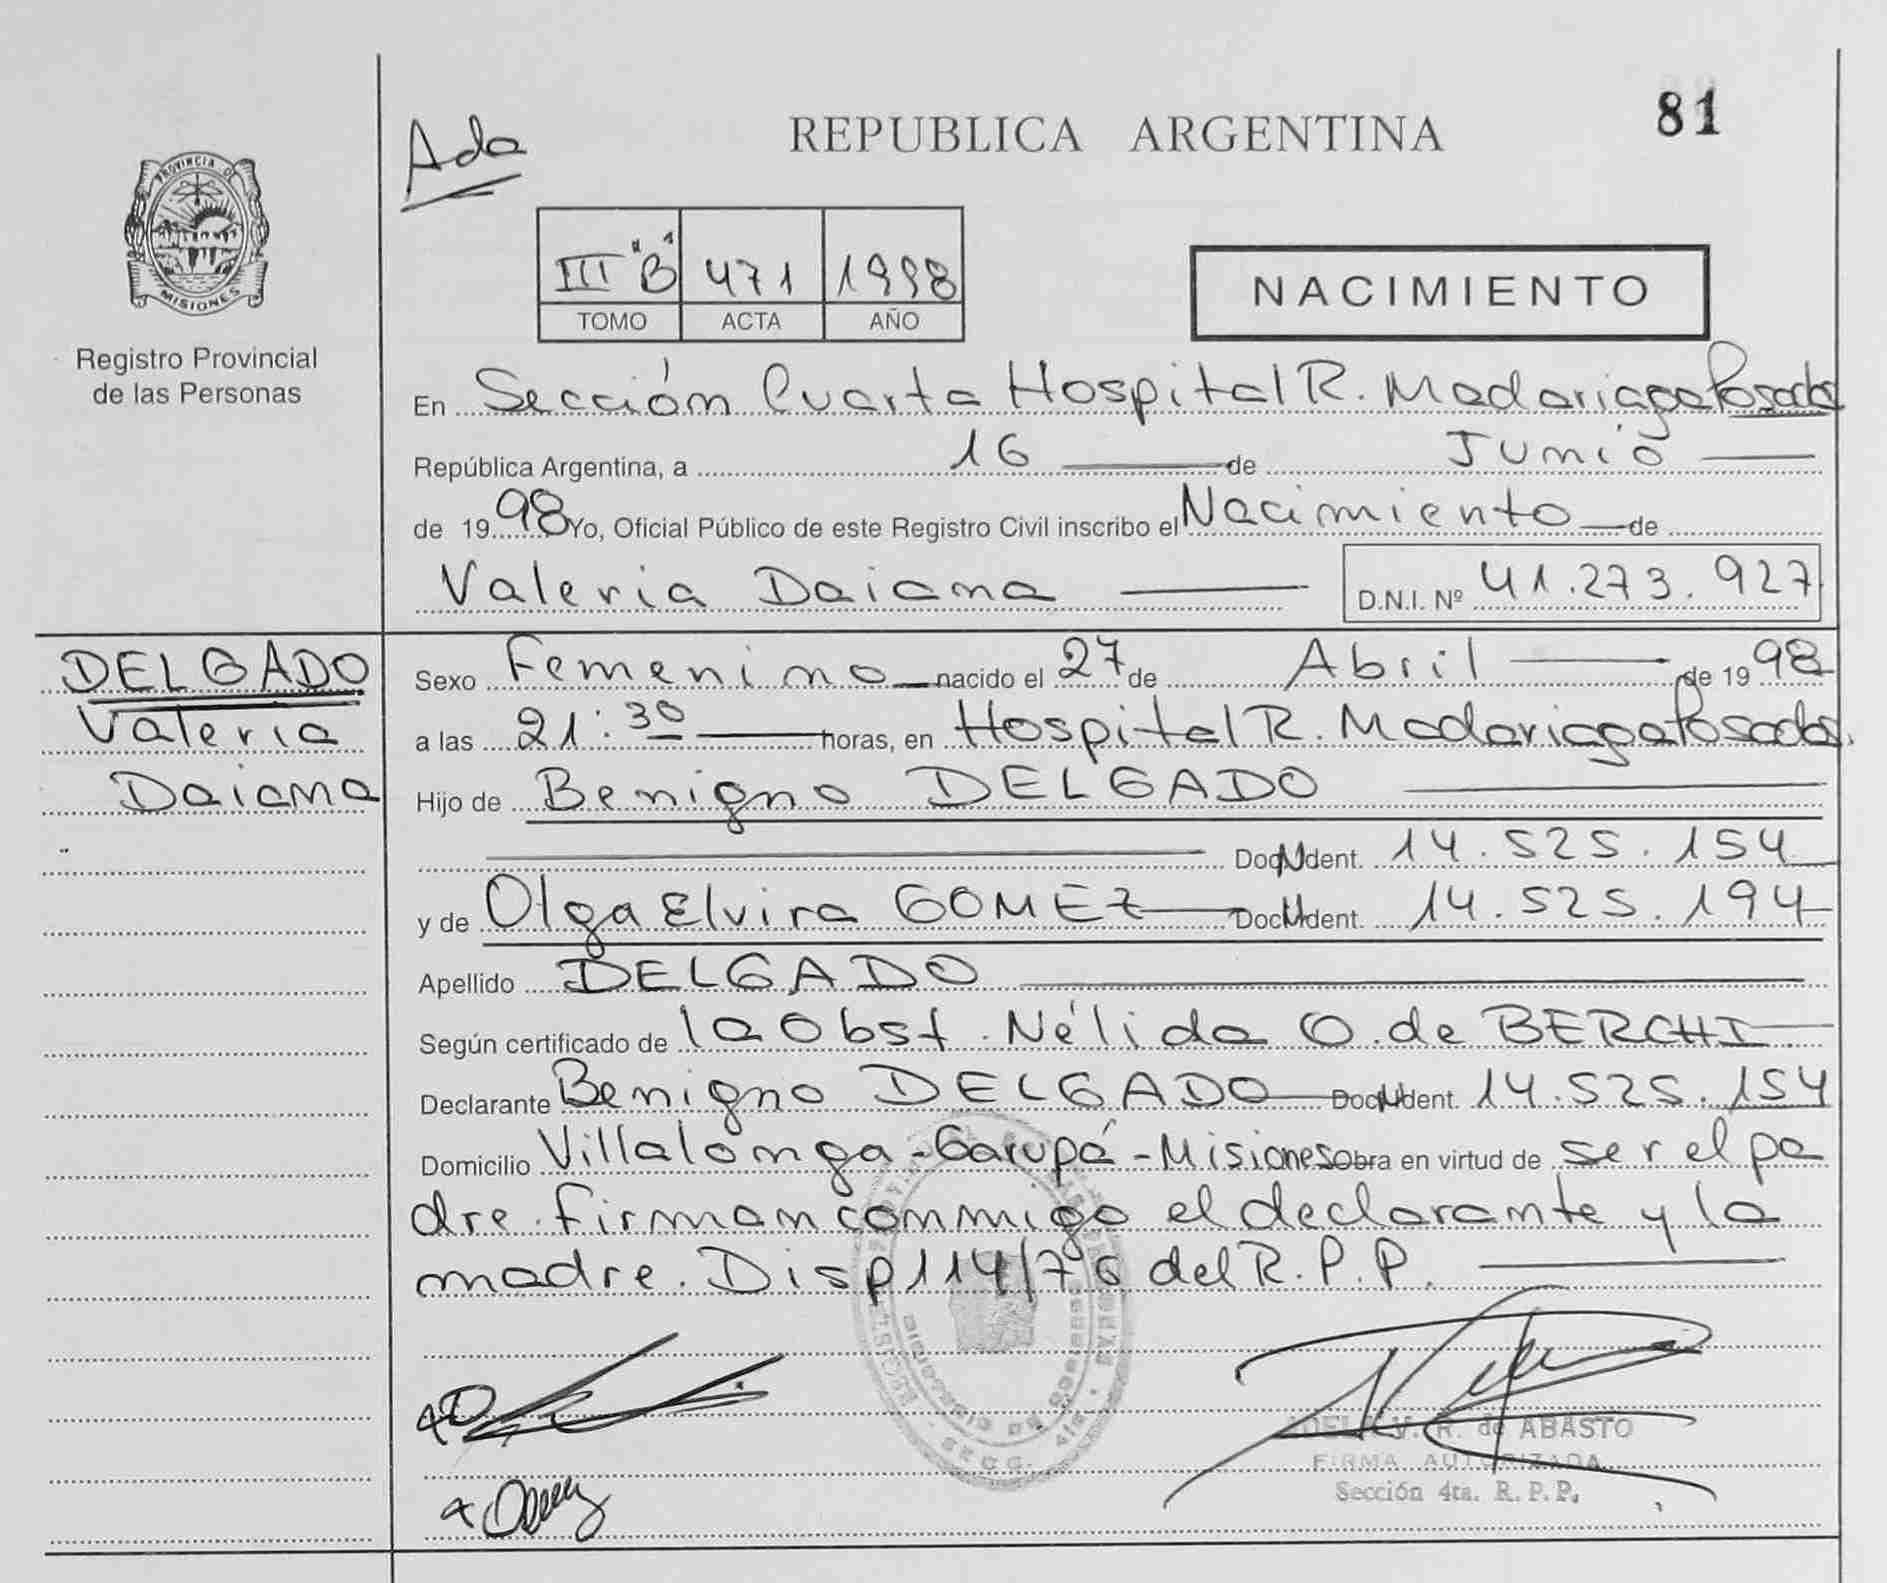 81
REPUBLICA ARGENTINA
Ada
PROVINCIA DE
MISIONES
Registro Provincial
de las Personas
III "B" 471 1998
TOMO ACTA AÑO
NACIMIENTO
En Sección Cuarta Hospital R. Madariaga Posadas
República Argentina, a 16 de Junio
de 1998 Yo, Oficial Público de este Registro Civil inscribo el Nacimiento de
Valeria Daiana D.N.I. Nº 41.273.927
DELGADO
Valeria
Daiana
Sexo Femenino nacido el 27 de Abril de 1998
a las 21:30 horas, en Hospital R. Madariaga Posadas.
Hijo de Benigno DELGADO
Doc. Ident. 14.525.154
y de Olga Elvira GOMEZ Doc. Ident. 14.525.194
Apellido DELGADO
Según certificado de la Obst. Nélida O. de BERCHI
Declarante Benigno DELGADO Doc. Ident. 14.525.154
Domicilio Villalonga - Garupá - Misiones obra en virtud de ser el pa
dre. firman conmigo el declarante y la
madre. Disp 114/76 del R.P.P.
V. R. de ABASTO
FIRMA AUTORIZADA
Sección 4ta. R. P. P.